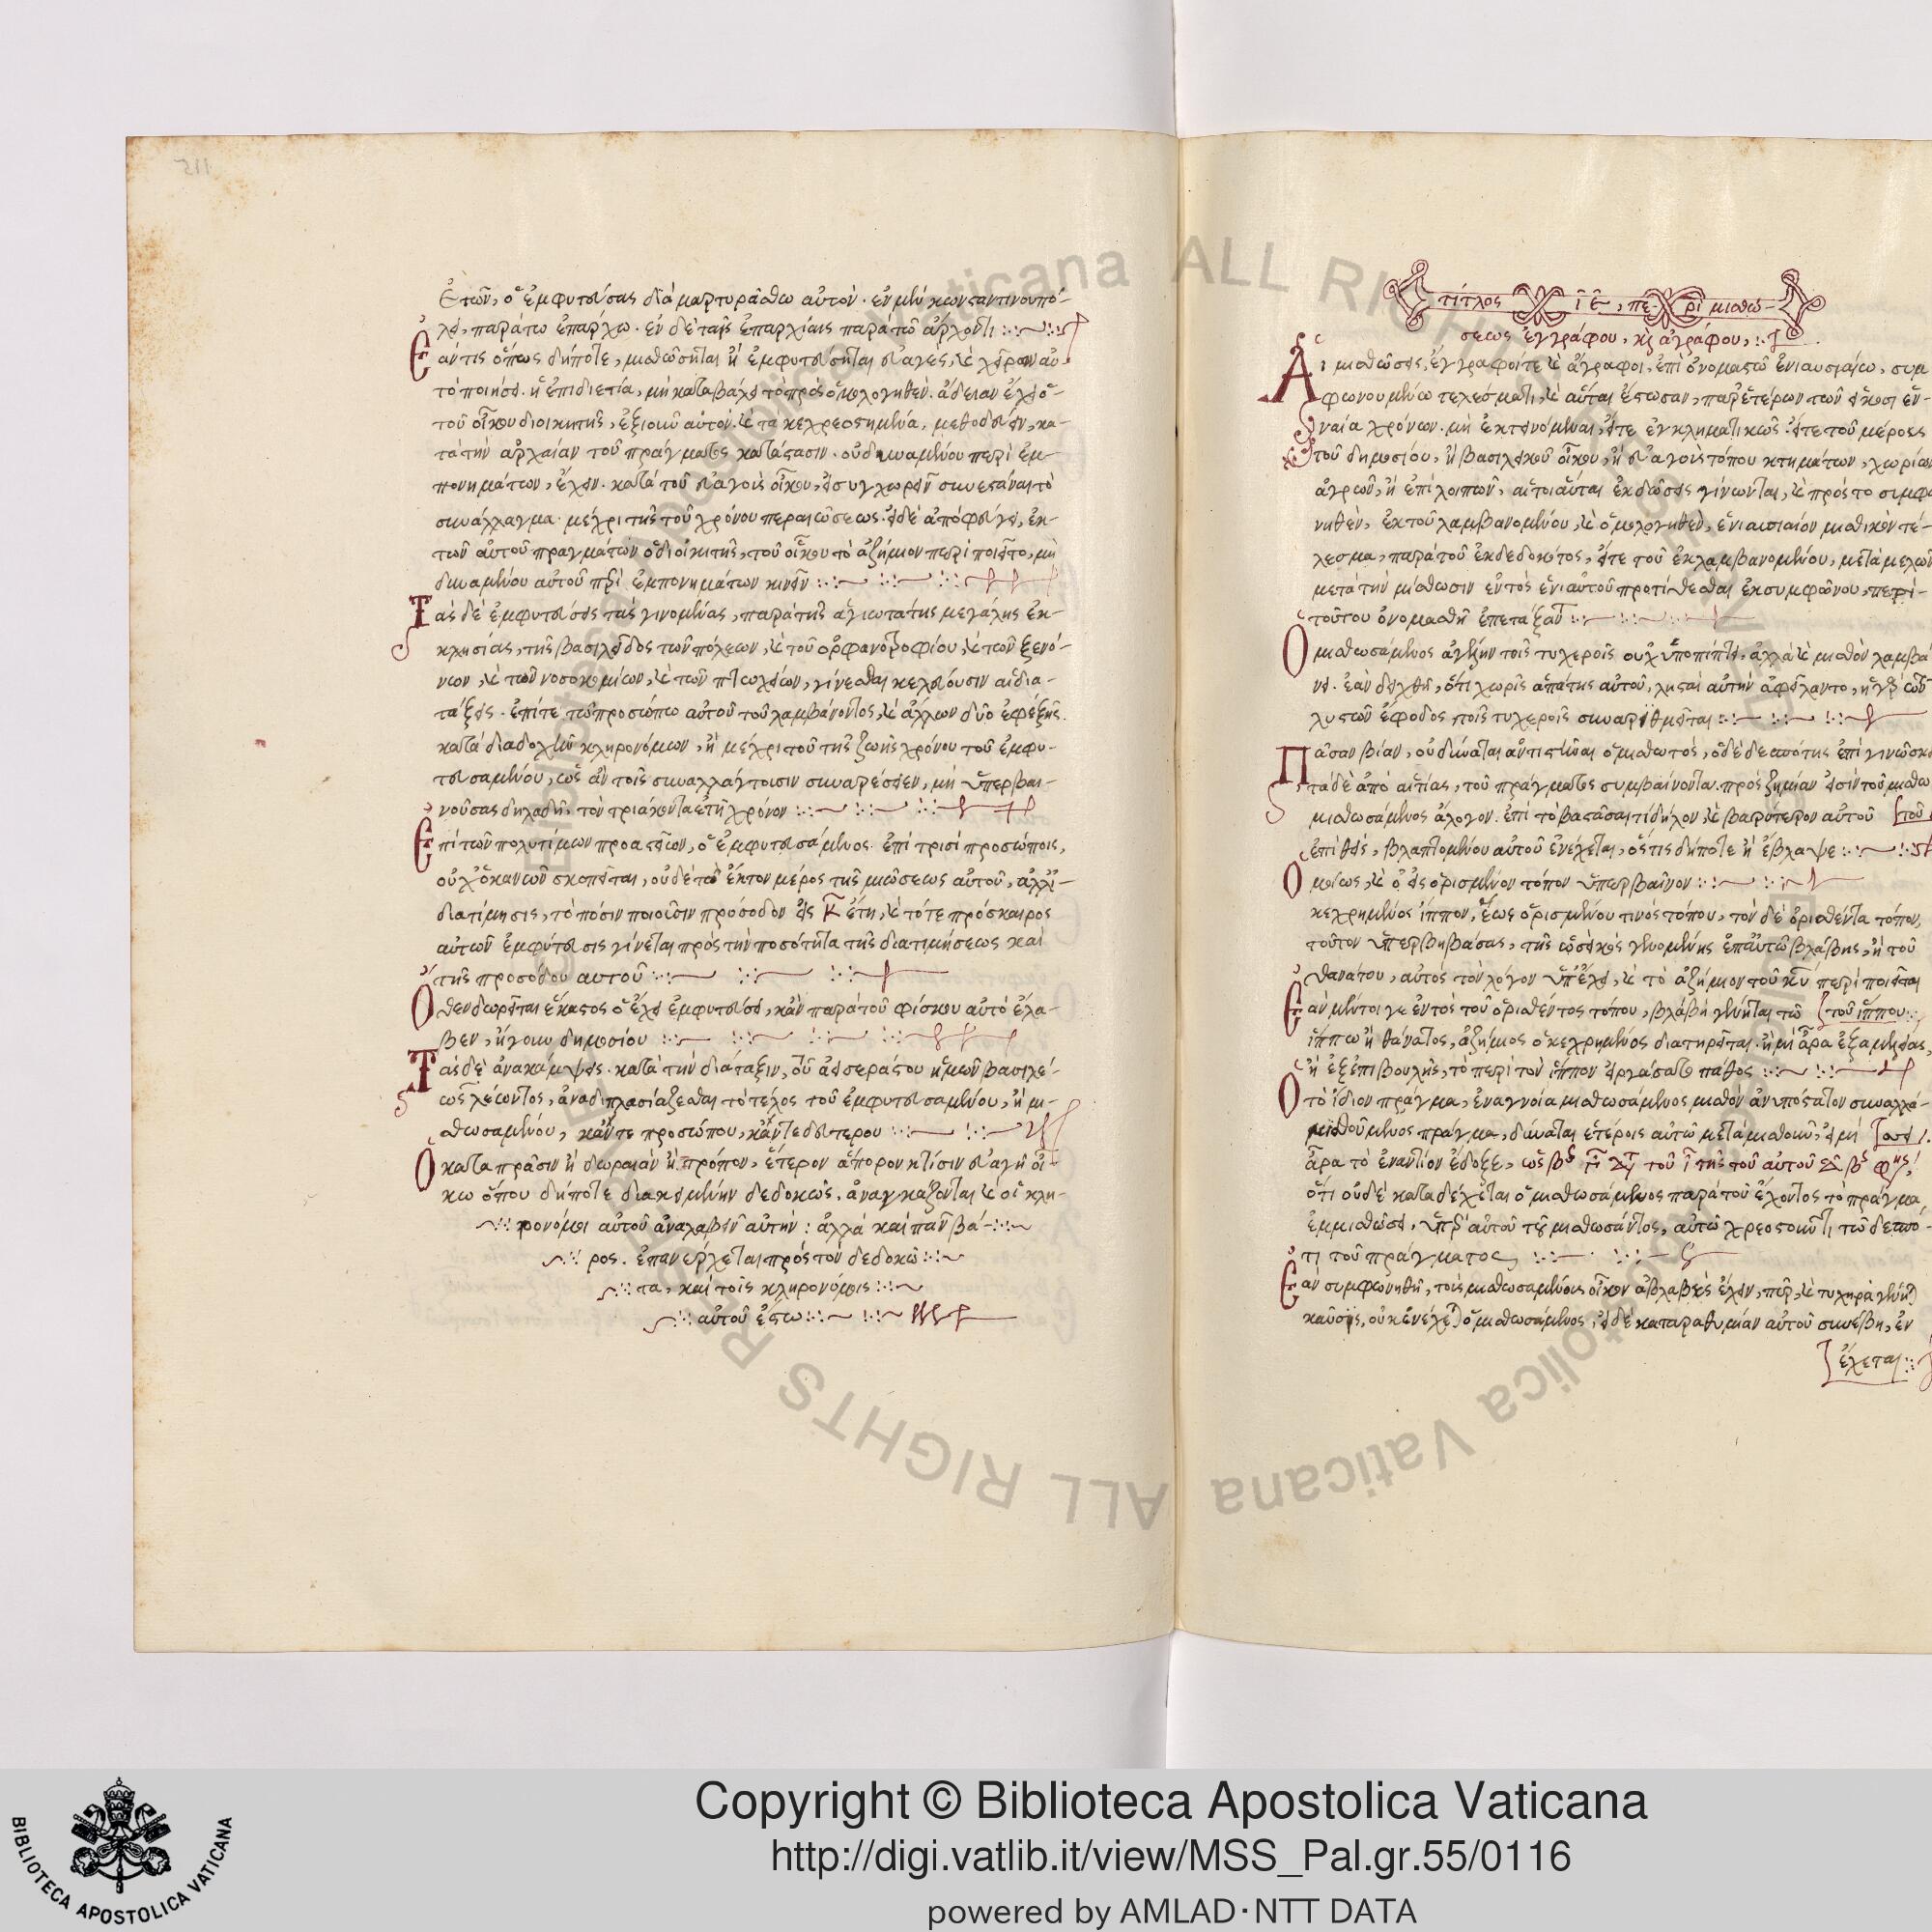 ἐτῶν, ὁ ἐμφυτεύσας διαμαρτυράσθω αὐτὸν. ἐν μὲν κωνσταντινουπό-
λει, παρὰ τῶ ἐπάρχω. ἐν δὲ ταῖς ἐπαρχίαις παρὰ τῶ ἄρχοντι
Εάν τις οἵως δήποτε, μισθώσηται ἢ ἐμφυτεύσηται εὐαγὲς, καὶ χεῖρον αὐ-
τὸ ποιήσει. ἢ ἐπὶ διετία, μὴ καταβάλει τὸ προσομολογηθὲν. ἄδειαν ἔχει ὁ
τοῦ οἴκου διοικητὴς, ἐξιοῦν αὐτὸν. καὶ τὰ κεχρεοστημένα, μεθοδεύειν, κα-
τὰ τὴν ἀρχαίαν τοῦ πράγματος κατάστασιν. οὐ δυναμένου περὶ ἐμ-
πονημάτων, ἔχειν. κατὰ τοῦ εὐαγοῦς οἴκου, εἰ συγχωρεῖν συνεστάναι τὸ
συνάλλαγμα. μέχρι τῆς τοῦ χρόνου περαιώσεως. εἰ δὲ ἀποφεύγει, ἐκ
τῶν αὐτοῦ πραγμάτων ὁ διοικητὴς, τοῦ οἴκου τὸ ἀζήμιον περιποιεῖτο, μὴ
δυναμένου αὐτοῦ περὶ ἐμπονημάτων κινεῖν
Τὰς δὲ ἐμφυτεύσεις τὰς γινομένας, παρὰ τῆς ἁγιωτάτης μεγάλης ἐκ-
κλησίας, τῆς βασιλίδος τῶν πόλεων, καὶ τοῦ ὀρφανοτροφίου, καὶ τῶν ξενό-
νων, καὶ τῶν νοσοκομίων, καὶ τῶν πτωχείων, γίνεσθαι κελεύουσιν αἱ δια-
τάξεις. ἐπί τε τῶ προσώπω αὐτοῦ τοῦ λαμβάνοντος, καὶ ἄλλων δύο ἐφεξῆς.
κατὰ διαδοχὴν κληρονόμων, ἢ μέχρι τοῦ τῆς ζωῆς χρόνου τοῦ ἐμφυ-
τευσαμένου, ὡς ἂν τοῖς συναλλάγτουσιν συναρέσειεν, μὴ ὑπερβαι-
νούσας δηλαδὴ, τὸν τριακονταετῆ χρόνον
Ἐπὶ τῶν πολυτίμων προαστείων, ὁ ἐμφυτευσάμενος ἐπὶ τρισὶ προσώποις,
διατίμησις, τὸ πόσιν ποιοῦσιν πρόσοδον εἰς κ ἔτη, καὶ τότε πρόσκαιρος
αὐτῶν ἐμφύτευσις γίνεται πρὸς τὴν ποσότητα τῆς διατιμήσεως καὶ
τῆς προσόδου αυτοῦ
Ὅθεν δωρεῖται ἕκαστος ὃ ἔχει ἐμφυτεύσει, κἂν παρὰ τοῦ φίσκου αὐτὸ ἔλα-
βεν, ἤγουν δημοσίου
Τὰς δὲ ἀνακάμψεις. κατὰ τὴν διάταξιν, τοῦ ἀεισεβάστου ἡμῶν βασιλέ-
ως λέωντος, ἀναδιπλασιάζεσθαι τὸ τέλος τοῦ ἐμφυτευσαμένου, ἢ μι-
σθωσαμένου, κἄν τε προσώπου, κἄν τε δευτέρου
Ὁ κατὰ πράσιν ἢ δωραιὰν ἢ τρόπον, ἕτερον ἄπορον κτίσιν εὐαγῆ οἴ-
κω ὅπου δήποτε διακειμένην δεδοκὼς. ἀναγκάζονται καὶ οἱ κλη-
ρονόμοι αὐτοῦ ἀναλαβεῖν αὐτὴν: ἀλλὰ καὶ πᾶν βά-
ρος. ἐπανέρχεται πρὸς τὸν δεδοκώ
τα, καὶ τοῖς κληρονόμοις
αὐτοῦ ἔστω
τίτλος ιε, περὶ μισθώ-
σεως ἐγγράφου, κὶ ἀγράφου,
Αἱ μισθώσεις, ἔγγραφοί τε καὶ ἄγραφοι, ἐπὶ ὀνομαστῶ ἐνιαυσιαίω, συμ
φωνουμένω τελέσματι, καὶ αὗται ἔστωσαν, παρ' ἑτέρων τῶν εἴκοσι ἐν-
ναία χρόνων. μὴ ἐκτεινόμεναι, εἴτε ἐγκληματικῶς. εἴτε τοῦ μέρους
τοῦ δημοσίου, ἢ βασιλεικοῦ οἴκου, ἢ εὐαγοὺς τόπου κτημάτων, χωρίων
ἀγρῶν, ἢ ἐπὶ λοιπῶν. αἱ τοιαῦται ἐκδώσεις γίνωνται, καὶ πρὸς το συμφω
νηθὲν, ἐκ τοῦ λαμβανομένου, καὶ ὁμολογηθὲν, ἐνιαυσιαίον μισθικὸν τέ-
λεσμα, παρὰ τοῦ ἐκδεδοκότος, εἴτε τοῦ ἐκλαμβανομένου, μετὰ μελων
μετὰ τὴν μίσθωσιν ἐντὸς ἐνιαυτοῦ προτίθεσθαι ἐκ συμφώνου, περὶ-
τούτου ὀνομασθῆ ἐπεταξαν
Ὁ μισθωσάμενος ἀγέλην τοῖς τυχεροῖς οὐχ ὑποπίπτει, ἀλλὰ καὶ μισθὸν λαμβά
νει. ἐὰν δειχθῆ, ὅτι χωρὶς ἀπάτης αὐτοῦ, λησταὶ αὐτὴν ἀφείλαντο, ἡ γὰρ τῶν
ληστῶν ἔφοδος τοῖς τυχεροῖς συναριθμεῖται
Πᾶσαν βίαν, οὐ δύναται ἀντιστῆναι ὁ μισθωτὸς, ὁ δὲ δεσπότης ἐπιγινώσκει
τὰ δὲ ἀπὸ αἰτίας, τοῦ πράγματος συμβαίνοντα. πρὸς ζημίαν εἰσὶν τοῦ μισθω
μισθωσάμενος ἄλογον. ἐπὶ τὸ βαστάσαι τί δήλον, καὶ βαρύτερον αὐτοῦ
ἐπιθεὶς, βλαπτομένου αὐτοῦ ἐνέχεται, οἵτις δήποτε ἢ ἔβλαψε
Ὁμοίως, καὶ ὁ εἰς ὁρισμένον τόπον ὑπερβαῖνον
κεχρημένος ἵππον, ἕως ὁρισμένου τινὸς τόπου, τὸν δὲ ὁρισθέντα τόπον,
τοῦτον ὑπερβηβάσας, τῆς ὡσεικὸς γενομένης ἐπ' αὐτῶ βλάβης, ἢ τοῦ
θανάτου, αὐτὸς τὸν λόγον ὑπέχει, καὶ τὸ ἀζήμιον τοῦ κυ περιποιεῖται
Ἐὰν μέντοιγε ἐντὸς τοῦ ὁρισθέντος τόπου, βλάβη γένηται τῶ
τοῦ ἵππου
ἵππω ἢ θάνατος, ἀζήμιος ὁ κεχρημένος διατηρεῖται. ἢ μὴ ἄρα ἐξ ἀμελείας,
ἢ ἐξ ἐπιβουλῆς, τὸ περὶ τὸν ἵππον εἰργάσατο πάθος
Ὁ τὸ ἴδιον πράγμα, ἐν ἀγνοία μισθωσάμενος μισθὸν ἀνυπόστατον συναλλά-
μισθούμενος πράγμα, δύναται ἑτέροις αὐτῶ μεταμισθοῦν, εἰ μὴ
ἄρα τὸ ἐναντίον ἔδοξε,
ὅτι οὐδὲ καταδέχεται ὁ μισθωσάμενος παρὰ τοῦ ἔχοντος τὸ πράγμα
ἐμμισθώσει, ὑπὲρ αὐτοῦ τοῦ μισθωσάντος, αὐτῶ χρεοστοῦντι τῶ δεσπό-
τι τοῦ πράγματος
Ἐὰν συμφωνηθῆ, τοὺς μισθωσαμένους οἶκον ἀβλαβὲς ἔχειν, πῦρ, καὶ τυχηρὰ γένηται
καῦσις, οὐκ ἐνέχεται ὁ μισθωσάμενος, εἰ δὲ κατὰ ραθυμίαν αὐτοῦ συνέβη, ἐν
έχεται
Copyright © Biblioteca Apostolica Vaticana
http://digi.vatlib.it/view/MSS_Pal.gr.55/0116
powered by AMLAD·NTT DATA
BIBLIOTECA APOSTOLICA VATICANA